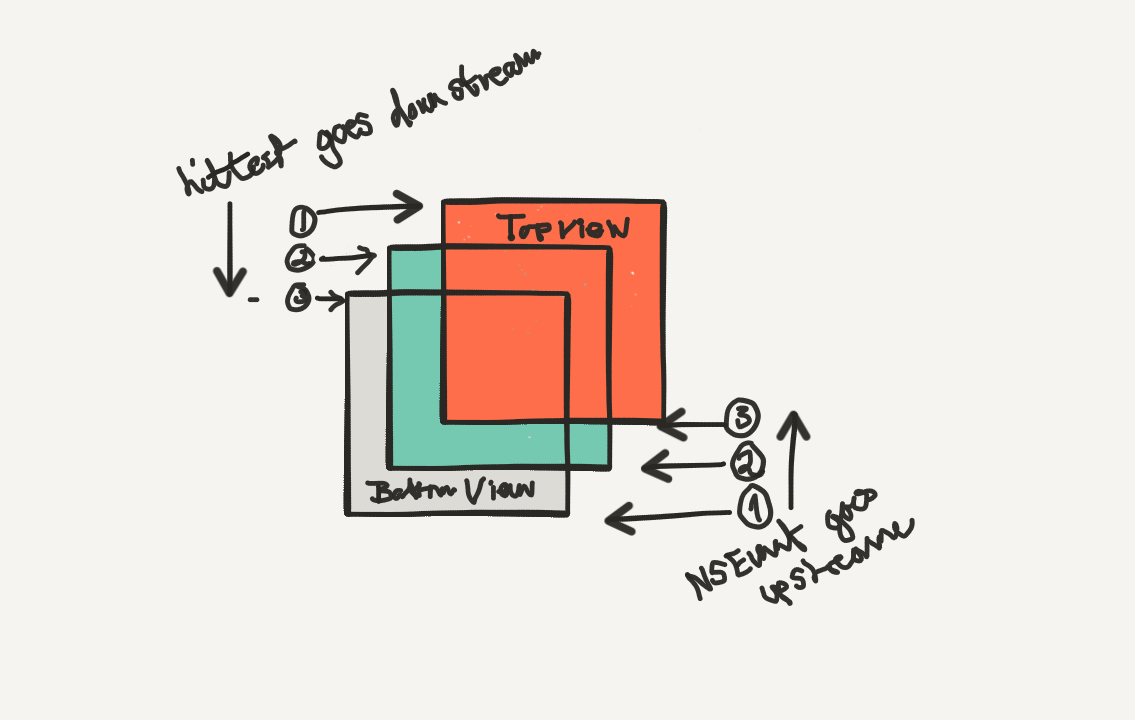 hittest goes downstream
①
②
- ③
Top view
Bottom View
③
②
①
NSEvent goes
upstreame